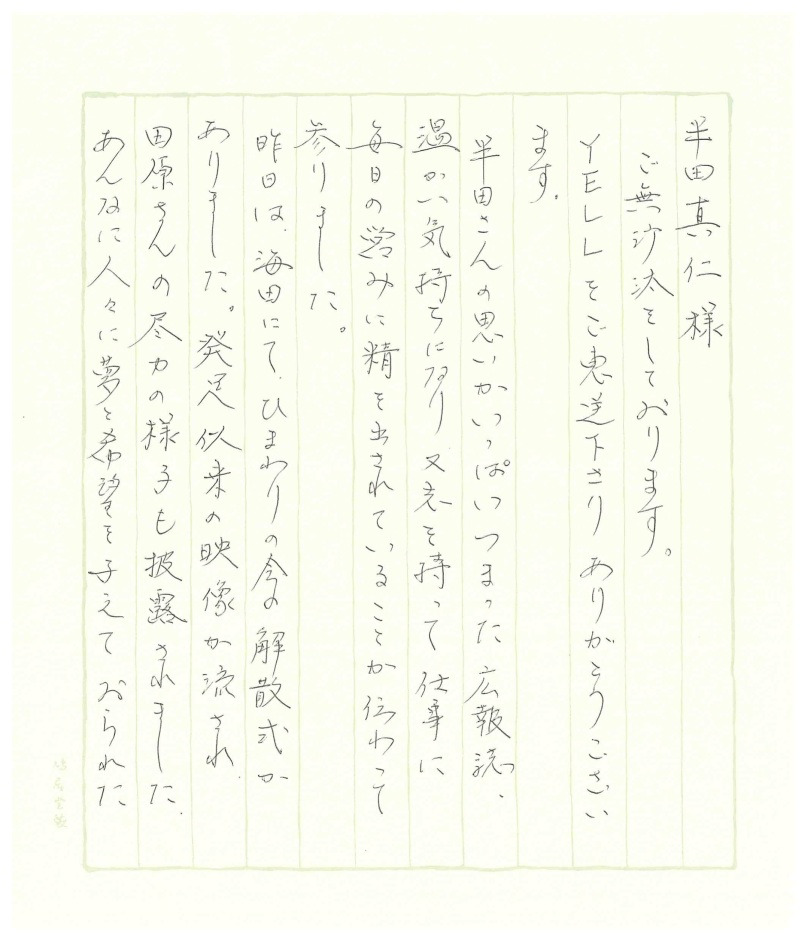 半田真仁様
ご無沙汰をしております。
YELLをご恵送下さりありがとうござい
ます。
半田さんの思いがいっぱいつまった広報誌、
温かい気持ちになり又志を持って仕事に
毎日の営みに精を出されていることが伝わって
参りました。
昨日は、海田にて、ひまわりの会の解散式が
ありました。発足似来の映像が流され、
田原さんの尽力の様子も披露されました。
あんなに人々に夢と希望を与えておられた
鳩居堂製